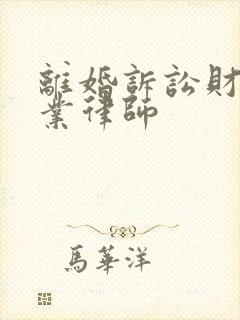 離婚訴訟財
業律師
馬華洋